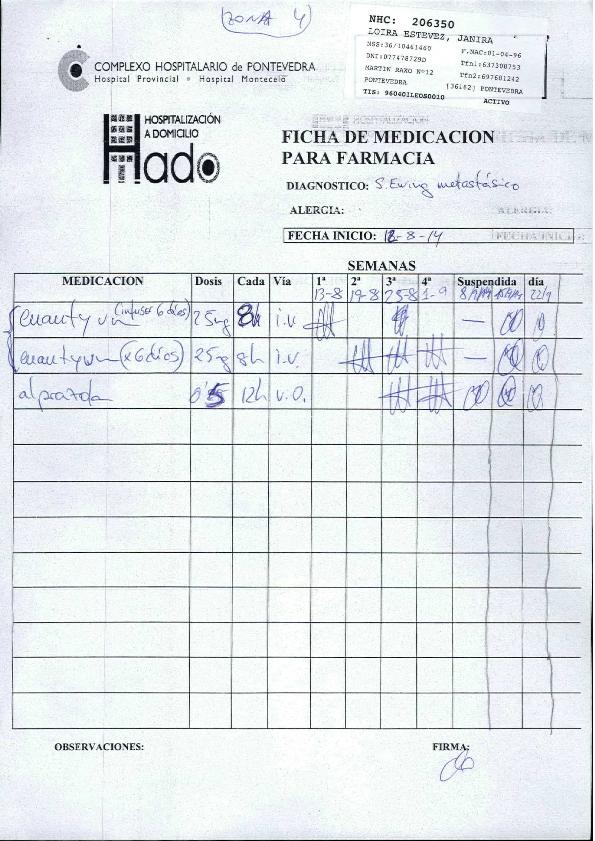 ZONA 4
NHC: 206350
LOIRA ESTEVEZ, JANIRA
NSS:36/10461460 F.NAC:01-04-96
DNI:077478729D Tfn1:637308753
MARTIN RAXO Nº12 Tfn2:697601242
PONTEVEDRA (36162) PONTEVEDRA
TIS: 960401LEOS0010 ACTIVO
COMPLEXO HOSPITALARIO de PONTEVEDRA
Hospital Provincial • Hospital Montecelo
HOSPITALIZACIÓN
A DOMICILIO
Hado
FICHA DE MEDICACION
PARA FARMACIA
DIAGNOSTICO: S. Ewing metastásico
ALERGIA:
FECHA INICIO: 13-8-14
SEMANAS
MEDICACION Dosis Cada Vía 1ª 2ª 3ª 4ª Suspendida día
13-8 19-8 25-8 1-9 22/9
(infusor 6 días) 25mg 8h i.v.
(x 6 días) 25mg 8h i.v.
0'5 12h v.o.
OBSERVACIONES: FIRMA: